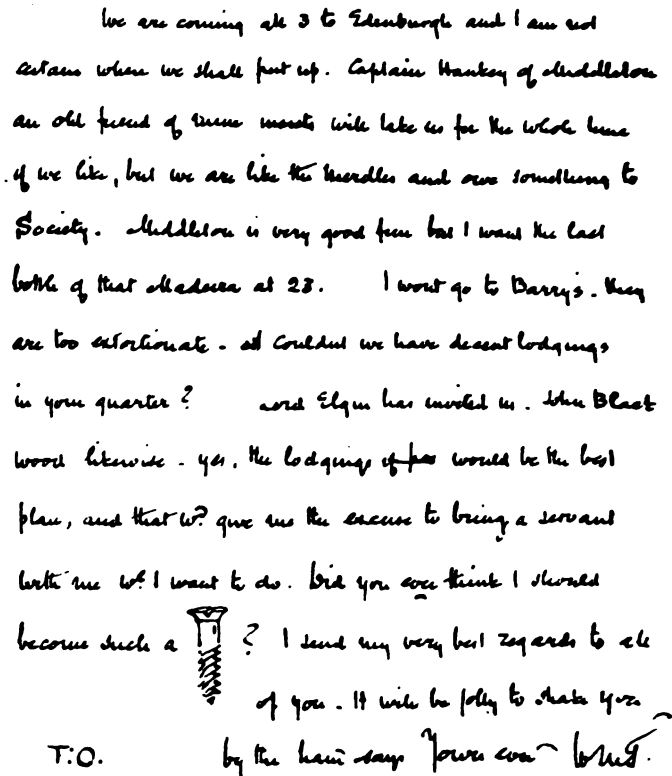 We are coming all 3 to Edenburgh and I am not
certain where we shall put up. Captain Hankey of Middleton
an old friend of mine wants will take us for the whole time
if we like, but we are like the Merdles and owe something to
Society. Middleton is very good fun but I want the last
bottle of that Madeira at 23. I wont go to Barry's. they
are too extortionate. Couldnt we have decent lodgings
in your quarter? Lord Elgin has invited us. John Black
wood likewise. yes, the lodgings would be the best
plan, and that wd. give me the excuse to bring a servant
with me wh. I want to do. Did you ever think I should
become such a ? I send my very best regards to all
of you. It will be jolly to shake you
by the hand says Yours ever
T.O.